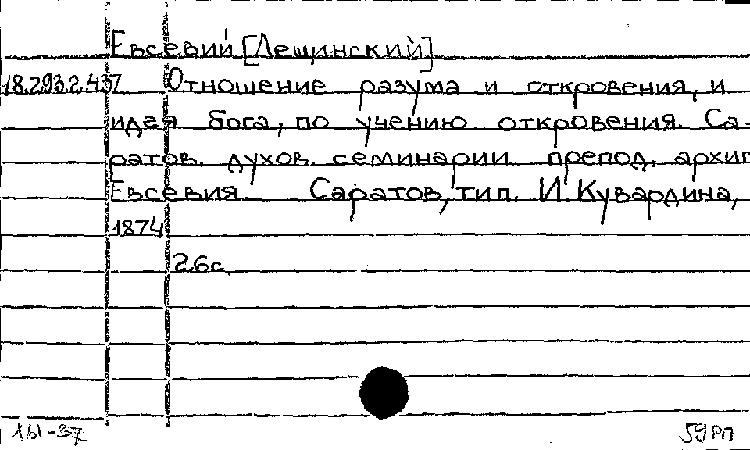 Евсевий [Лещинский]
18.293.2.437 Отношение разума и откровения, и
идея бога, по учению откровения. Са-
ратов. духов. семинарии препод. архип
Евсевия Саратов, тип. И. Кувардина,
1874
26с
161-37 59РП